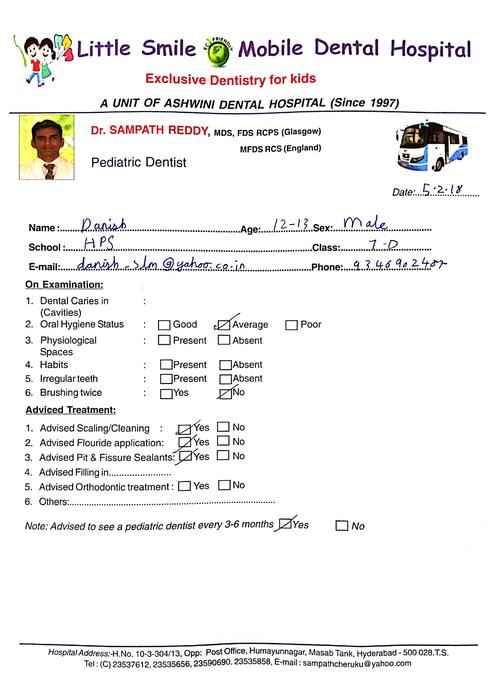 Little Smile ECO FRIENDLY Mobile Dental Hospital
Exclusive Dentistry for kids
A UNIT OF ASHWINI DENTAL HOSPITAL (Since 1997)
Dr. SAMPATH REDDY, MDS, FDS RCPS (Glasgow)
MFDS RCS (England)
Pediatric Dentist
Date: 5.2.18
Name: Danish Age: 12-13 Sex: Male
School: HPS Class: 7.D
E-mail: danish_slm@yahoo.co.in Phone:
On Examination:
1. Dental Caries in :
(Cavities)
2. Oral Hygiene Status : Good Average Poor
3. Physiological : Present Absent
Spaces
4. Habits : Present Absent
5. Irregular teeth : Present Absent
6. Brushing twice : Yes No
Adviced Treatment:
1. Advised Scaling/Cleaning : Yes No
2. Advised Flouride application: Yes No
3. Advised Pit & Fissure Sealants: Yes No
4. Advised Filling in....................
5. Advised Orthodontic treatment : Yes No
6. Others:............................................................
Note: Advised to see a pediatric dentist every 3-6 months Yes No
Hospital Address:-H.No. 10-3-304/13, Opp: Post Office, Humayunnagar, Masab Tank, Hyderabad - 500 028.T.S.
Tel : (C) 23537612, 23535656, 23590690. 23535858, E-mail : sampathcheruku@yahoo.com